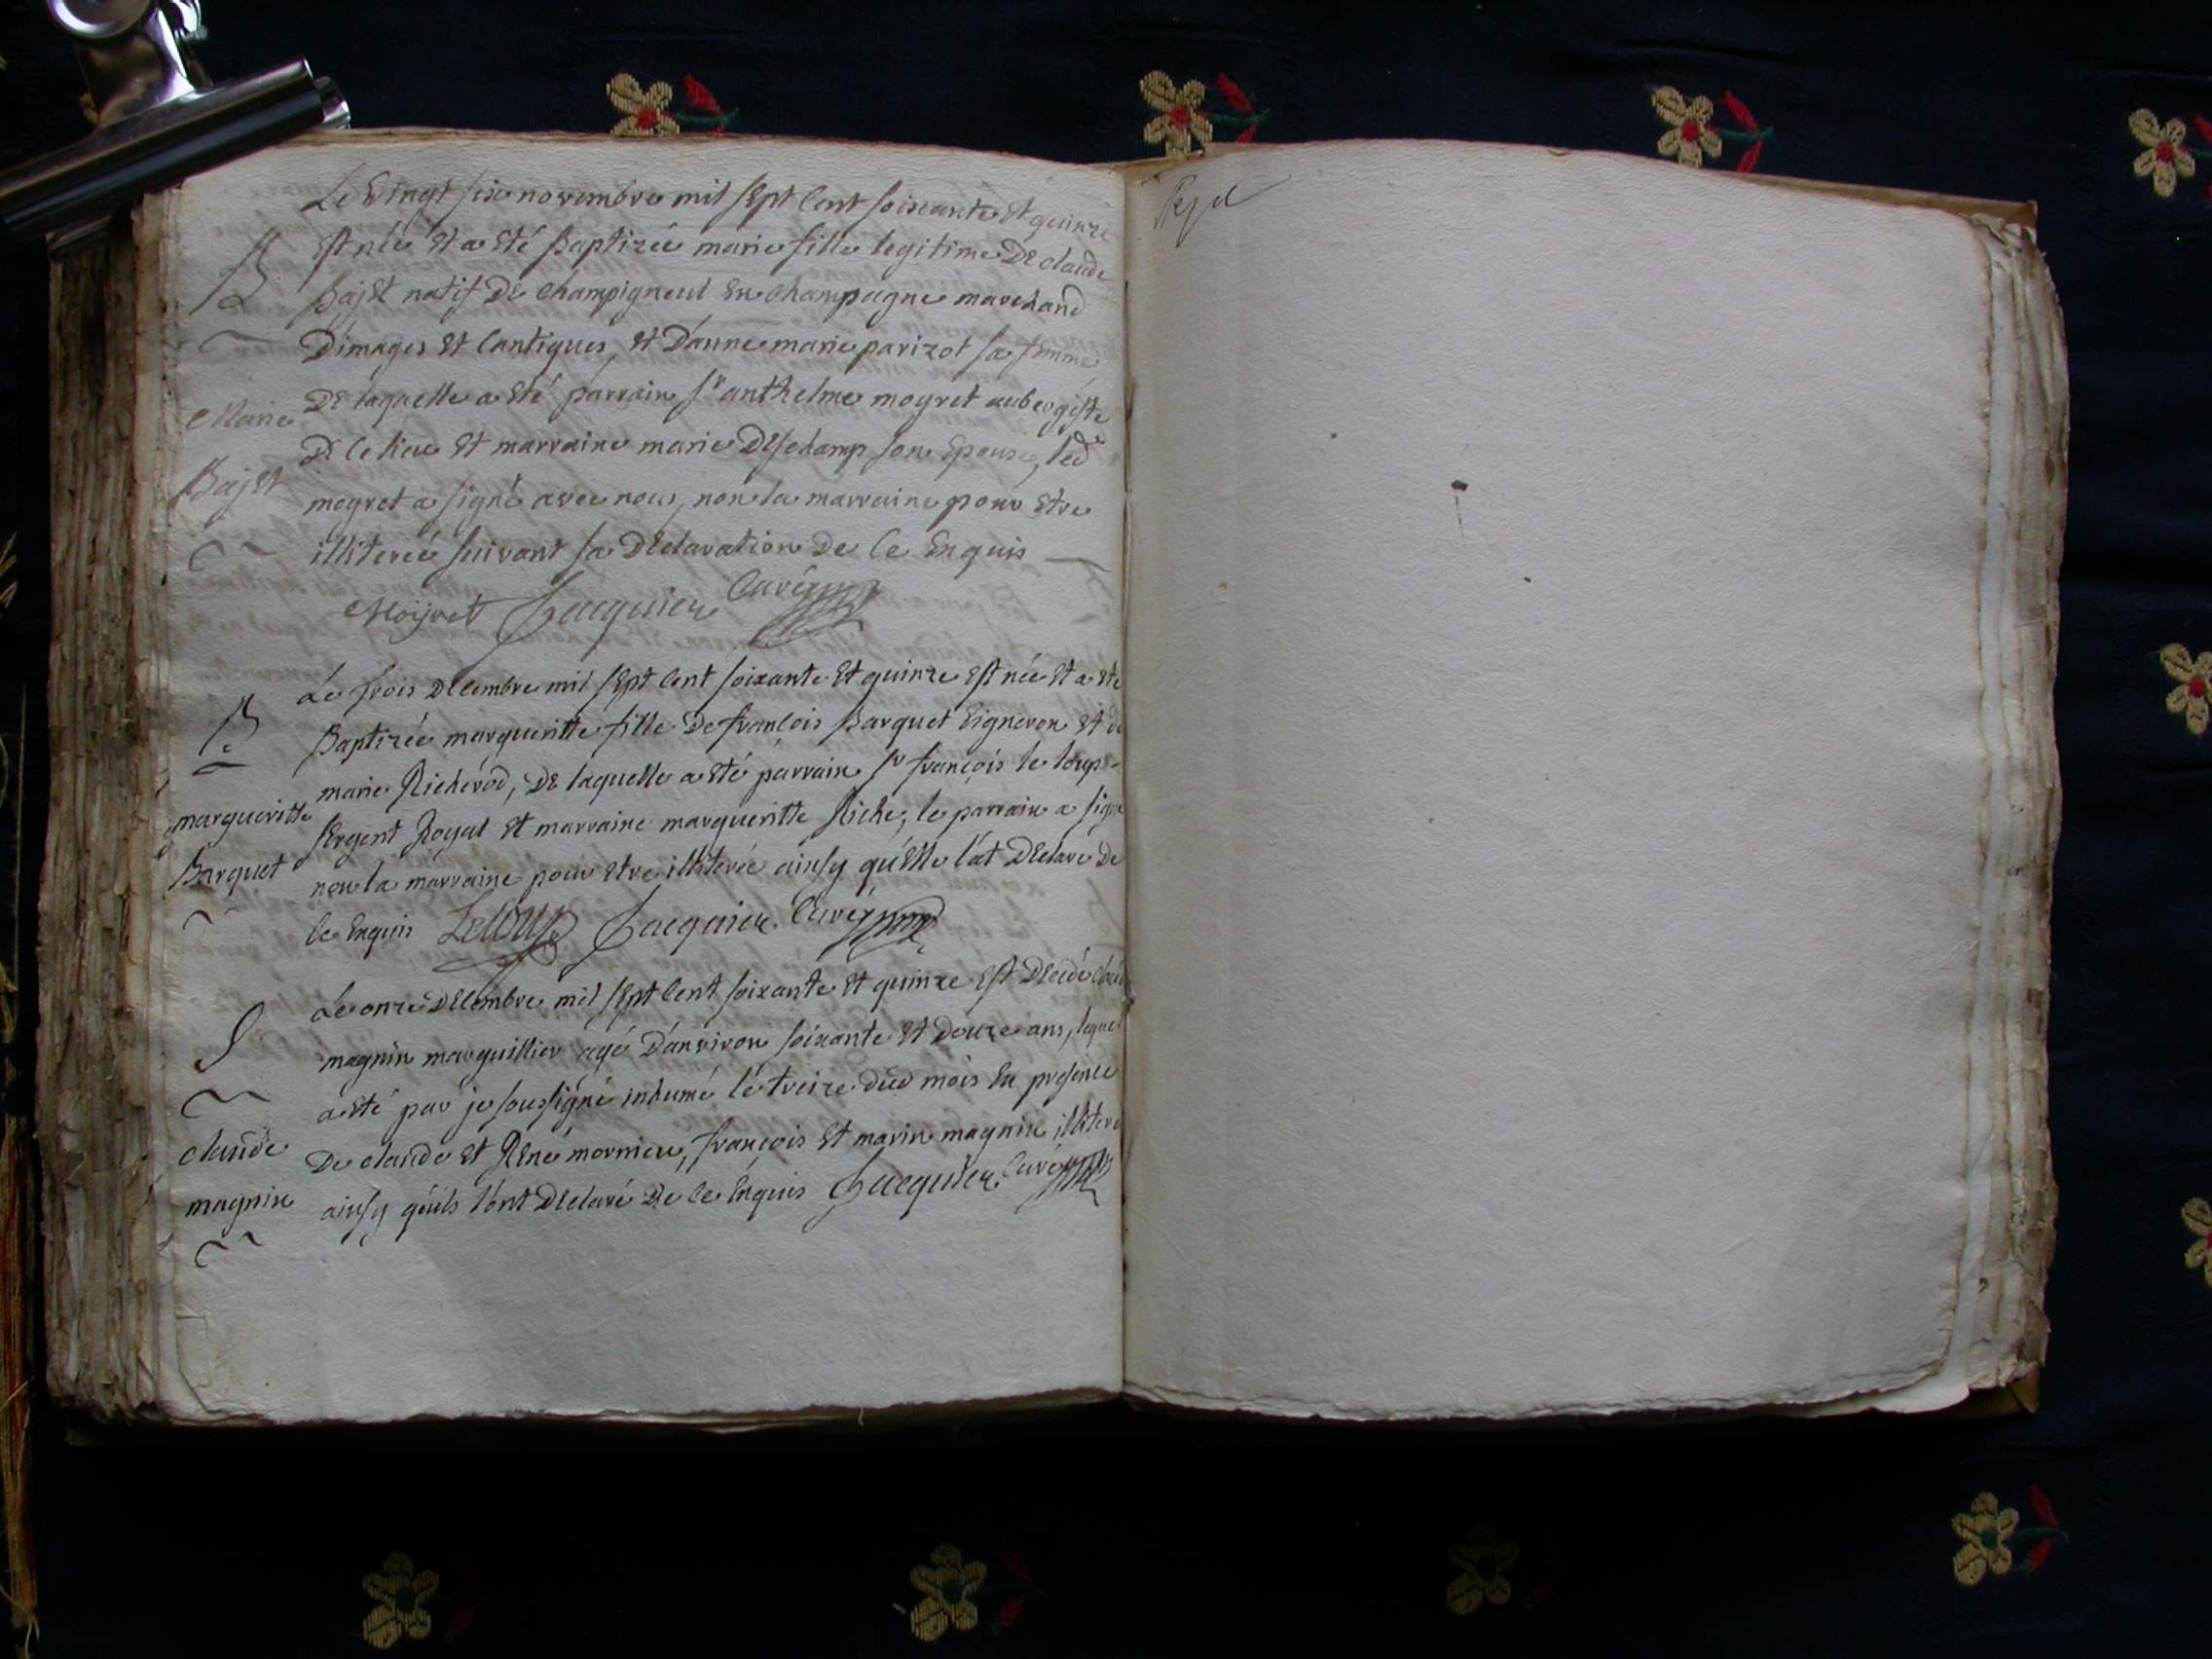 Le vingt six novembre mil sept cent soixante et quinze
B
est née et a eté Baptizée marie fille legitime De claude
Bajet natif De champigneul en champagne marchand
D'images et cantiques, et D'anne marie parizot sa femme
Marie
De laquelle a eté parrain Sr anthelme moyret aubergiste
De ce lieu et marraine marie Deschamp son epouse, led
Bajet
moyret a signé avec nous, non la marraine pour etre
illiterée suivant sa Declaration De ce enquis
Moyret Jacquier Curé
Le trois Decembre mil sept cent soixante et quinze est née et a eté
B
Baptizée margueritte fille De francois Barquet vigneron et de
marie Richerod, De laquelle a eté parrain Sr françois le loup
margueritte
sergent Royal et marraine margueritte Riche, le parrain a signé
Barquet
non la marraine pour etre illiterée ainsy qu'elle l'at Declare De
ce enquis Leloup Jacquier Curé
Le onze Decembre mil sept cent soixante et quinze est Decedé
S
magnin marguillier agé D'anviron soixante et Douze ans, lequel
a eté par je soussigné inhumé le treize dud mois en presence
claude
De claude et René mornieu, françois et marin magnin illiteré
magnin
ainsy qu'ils l'ont Declaré De ce enquis Jacquier Curé